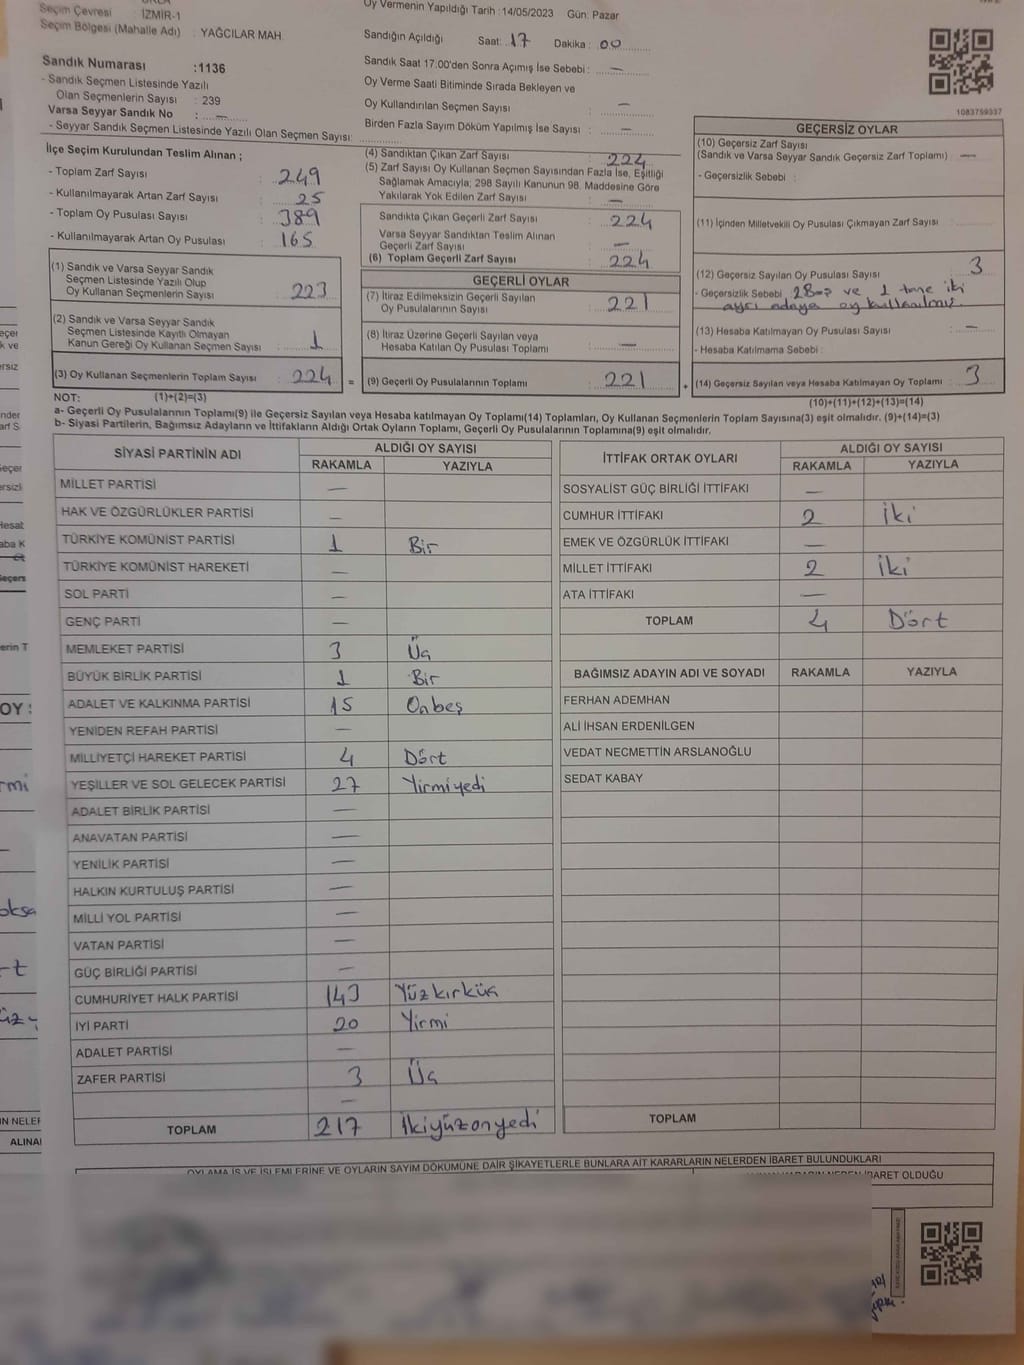 Seçim Çevresi : İZMİR-1
Seçim Bölgesi (Mahalle Adı) : YAĞCILAR MAH.
Sandık Numarası :1136
- Sandık Seçmen Listesinde Yazılı
Olan Seçmenlerin Sayısı : 239
Varsa Seyyar Sandık No : —
- Seyyar Sandık Seçmen Listesinde Yazılı Olan Seçmen Sayısı:
Oy Vermenin Yapıldığı Tarih :14/05/2023 Gün: Pazar
Sandığın Açıldığı Saat: 17 Dakika : 00
Sandık Saat 17:00'den Sonra Açımış İse Sebebi : —
Oy Verme Saati Bitiminde Sırada Bekleyen ve
Oy Kullandırılan Seçmen Sayısı : —
Birden Fazla Sayım Döküm Yapılmış İse Sayısı : —
1083759337
İlçe Seçim Kurulundan Teslim Alınan ;
- Toplam Zarf Sayısı : 249
- Kullanılmayarak Artan Zarf Sayısı : 25
- Toplam Oy Pusulası Sayısı : 389
- Kullanılmayarak Artan Oy Pusulası : 165
(1) Sandık ve Varsa Seyyar Sandık
Seçmen Listesinde Yazılı Olup
Oy Kullanan Seçmenlerin Sayısı : 223
(2) Sandık ve Varsa Seyyar Sandık
Seçmen Listesinde Kayıtlı Olmayan
Kanun Gereği Oy Kullanan Seçmen Sayısı : 1
(3) Oy Kullanan Seçmenlerin Toplam Sayısı : 224 =
(4) Sandıktan Çıkan Zarf Sayısı : 224
(5) Zarf Sayısı Oy Kullanan Seçmen Sayısından Fazla İse, Eşitliği
Sağlamak Amacıyla; 298 Sayılı Kanunun 98. Maddesine Göre
Yakılarak Yok Edilen Zarf Sayısı : —
Sandıkta Çıkan Geçerli Zarf Sayısı : 224
Varsa Seyyar Sandıktan Teslim Alınan
Geçerli Zarf Sayısı : —
(6) Toplam Geçerli Zarf Sayısı : 224
GEÇERLİ OYLAR
(7) İtiraz Edilmeksizin Geçerli Sayılan
Oy Pusulalarının Sayısı : 221
(8) İtiraz Üzerine Geçerli Sayılan veya
Hesaba Katılan Oy Pusulası Toplamı : —
(9) Geçerli Oy Pusulalarının Toplamı : 221 +
GEÇERSİZ OYLAR
(10) Geçersiz Zarf Sayısı
(Sandık ve Varsa Seyyar Sandık Geçersiz Zarf Toplamı) : —
- Geçersizlik Sebebi :
(11) İçinden Milletvekili Oy Pusulası Çıkmayan Zarf Sayısı :
(12) Geçersiz Sayılan Oy Pusulası Sayısı : 3
- Geçersizlik Sebebi : 2 Boş ve 1 tane iki
ayrı adaya oy kullanılmış
(13) Hesaba Katılmayan Oy Pusulası Sayısı : —
- Hesaba Katılmama Sebebi :
(14) Geçersiz Sayılan veya Hesaba Katılmayan Oy Toplamı : 3
NOT: (1)+(2)=(3)
(10)+(11)+(12)+(13)=(14)
a- Geçerli Oy Pusulalarının Toplamı(9) ile Geçersiz Sayılan veya Hesaba katılmayan Oy Toplamı(14) Toplamları, Oy Kullanan Seçmenlerin Toplam Sayısına(3) eşit olmalıdır. (9)+(14)=(3)
b- Siyasi Partilerin, Bağımsız Adayların ve İttifakların Aldığı Ortak Oyların Toplamı, Geçerli Oy Pusulalarının Toplamına(9) eşit olmalıdır.
SİYASİ PARTİNİN ADI ALDIĞI OY SAYISI
RAKAMLA YAZIYLA
MİLLET PARTİSİ —
HAK VE ÖZGÜRLÜKLER PARTİSİ —
TÜRKİYE KOMÜNİST PARTİSİ 1 Bir
TÜRKİYE KOMÜNİST HAREKETİ —
SOL PARTİ —
GENÇ PARTİ —
MEMLEKET PARTİSİ 3 Üç
BÜYÜK BİRLİK PARTİSİ 1 Bir
ADALET VE KALKINMA PARTİSİ 15 Onbeş
YENİDEN REFAH PARTİSİ —
MİLLİYETÇİ HAREKET PARTİSİ 4 Dört
YEŞİLLER VE SOL GELECEK PARTİSİ 27 Yirmiyedi
ADALET BİRLİK PARTİSİ —
ANAVATAN PARTİSİ —
YENİLİK PARTİSİ —
HALKIN KURTULUŞ PARTİSİ —
MİLLİ YOL PARTİSİ —
VATAN PARTİSİ —
GÜÇ BİRLİĞİ PARTİSİ —
CUMHURİYET HALK PARTİSİ 143 Yüzkırküç
İYİ PARTİ 20 Yirmi
ADALET PARTİSİ —
ZAFER PARTİSİ 3 Üç
—
TOPLAM 217 İkiyüzonyedi
İTTİFAK ORTAK OYLARI ALDIĞI OY SAYISI
RAKAMLA YAZIYLA
SOSYALİST GÜÇ BİRLİĞİ İTTİFAKI —
CUMHUR İTTİFAKI 2 İki
EMEK VE ÖZGÜRLÜK İTTİFAKI —
MİLLET İTTİFAKI 2 İki
ATA İTTİFAKI —
TOPLAM 4 Dört
BAĞIMSIZ ADAYIN ADI VE SOYADI RAKAMLA YAZIYLA
FERHAN ADEMHAN
ALİ İHSAN ERDENİLGEN
VEDAT NECMETTİN ARSLANOĞLU
SEDAT KABAY
TOPLAM
OYLAMA İŞ VE İŞLEMLERİNE VE OYLARIN SAYIM DÖKÜMÜNE DAİR ŞİKAYETLERLE BUNLARA AİT KARARLARIN NELERDEN İBARET BULUNDUKLARI
İBARET OLDUĞU